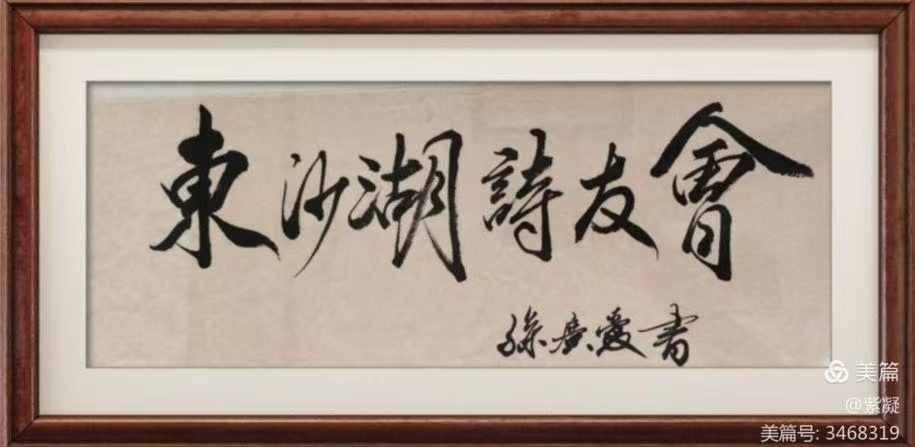 東沙湖詩友會
孫廣愛書
美篇
@紫凝
美篇号: 3468319